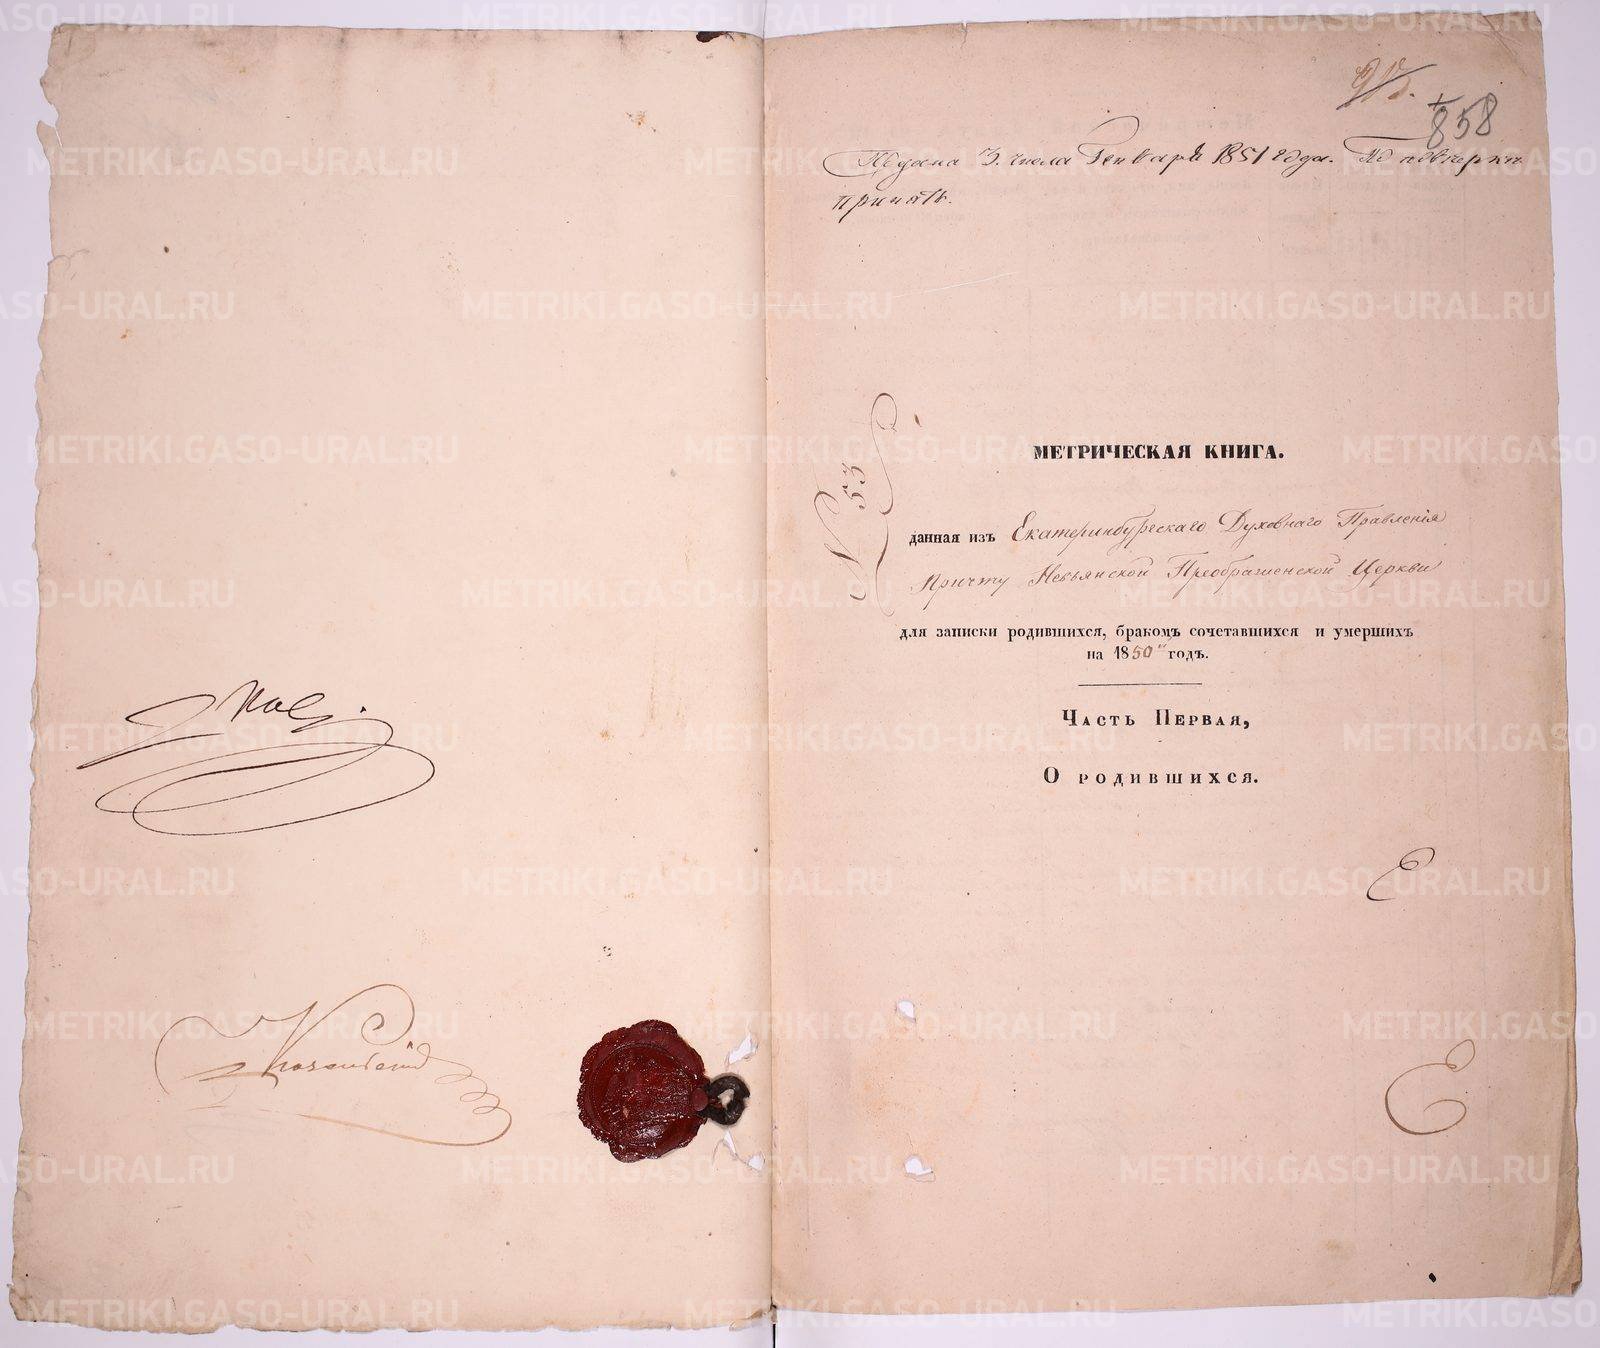 913.
858
Подана 3. числа Генваря 1851 года. По поверки
принять.
N 53
МЕТРИЧЕСКАЯ КНИГА.
данная изъ Екатеринбургскаго Духовнаго Правленія
Причту Невьянской Преображенской Церкви
для записки родившихся, бракомъ сочетавшихся и умершихъ
на 1850 годъ.
Часть Первая,
О родившихся.
Е
Е
METRIKI.GASO-URAL.RU